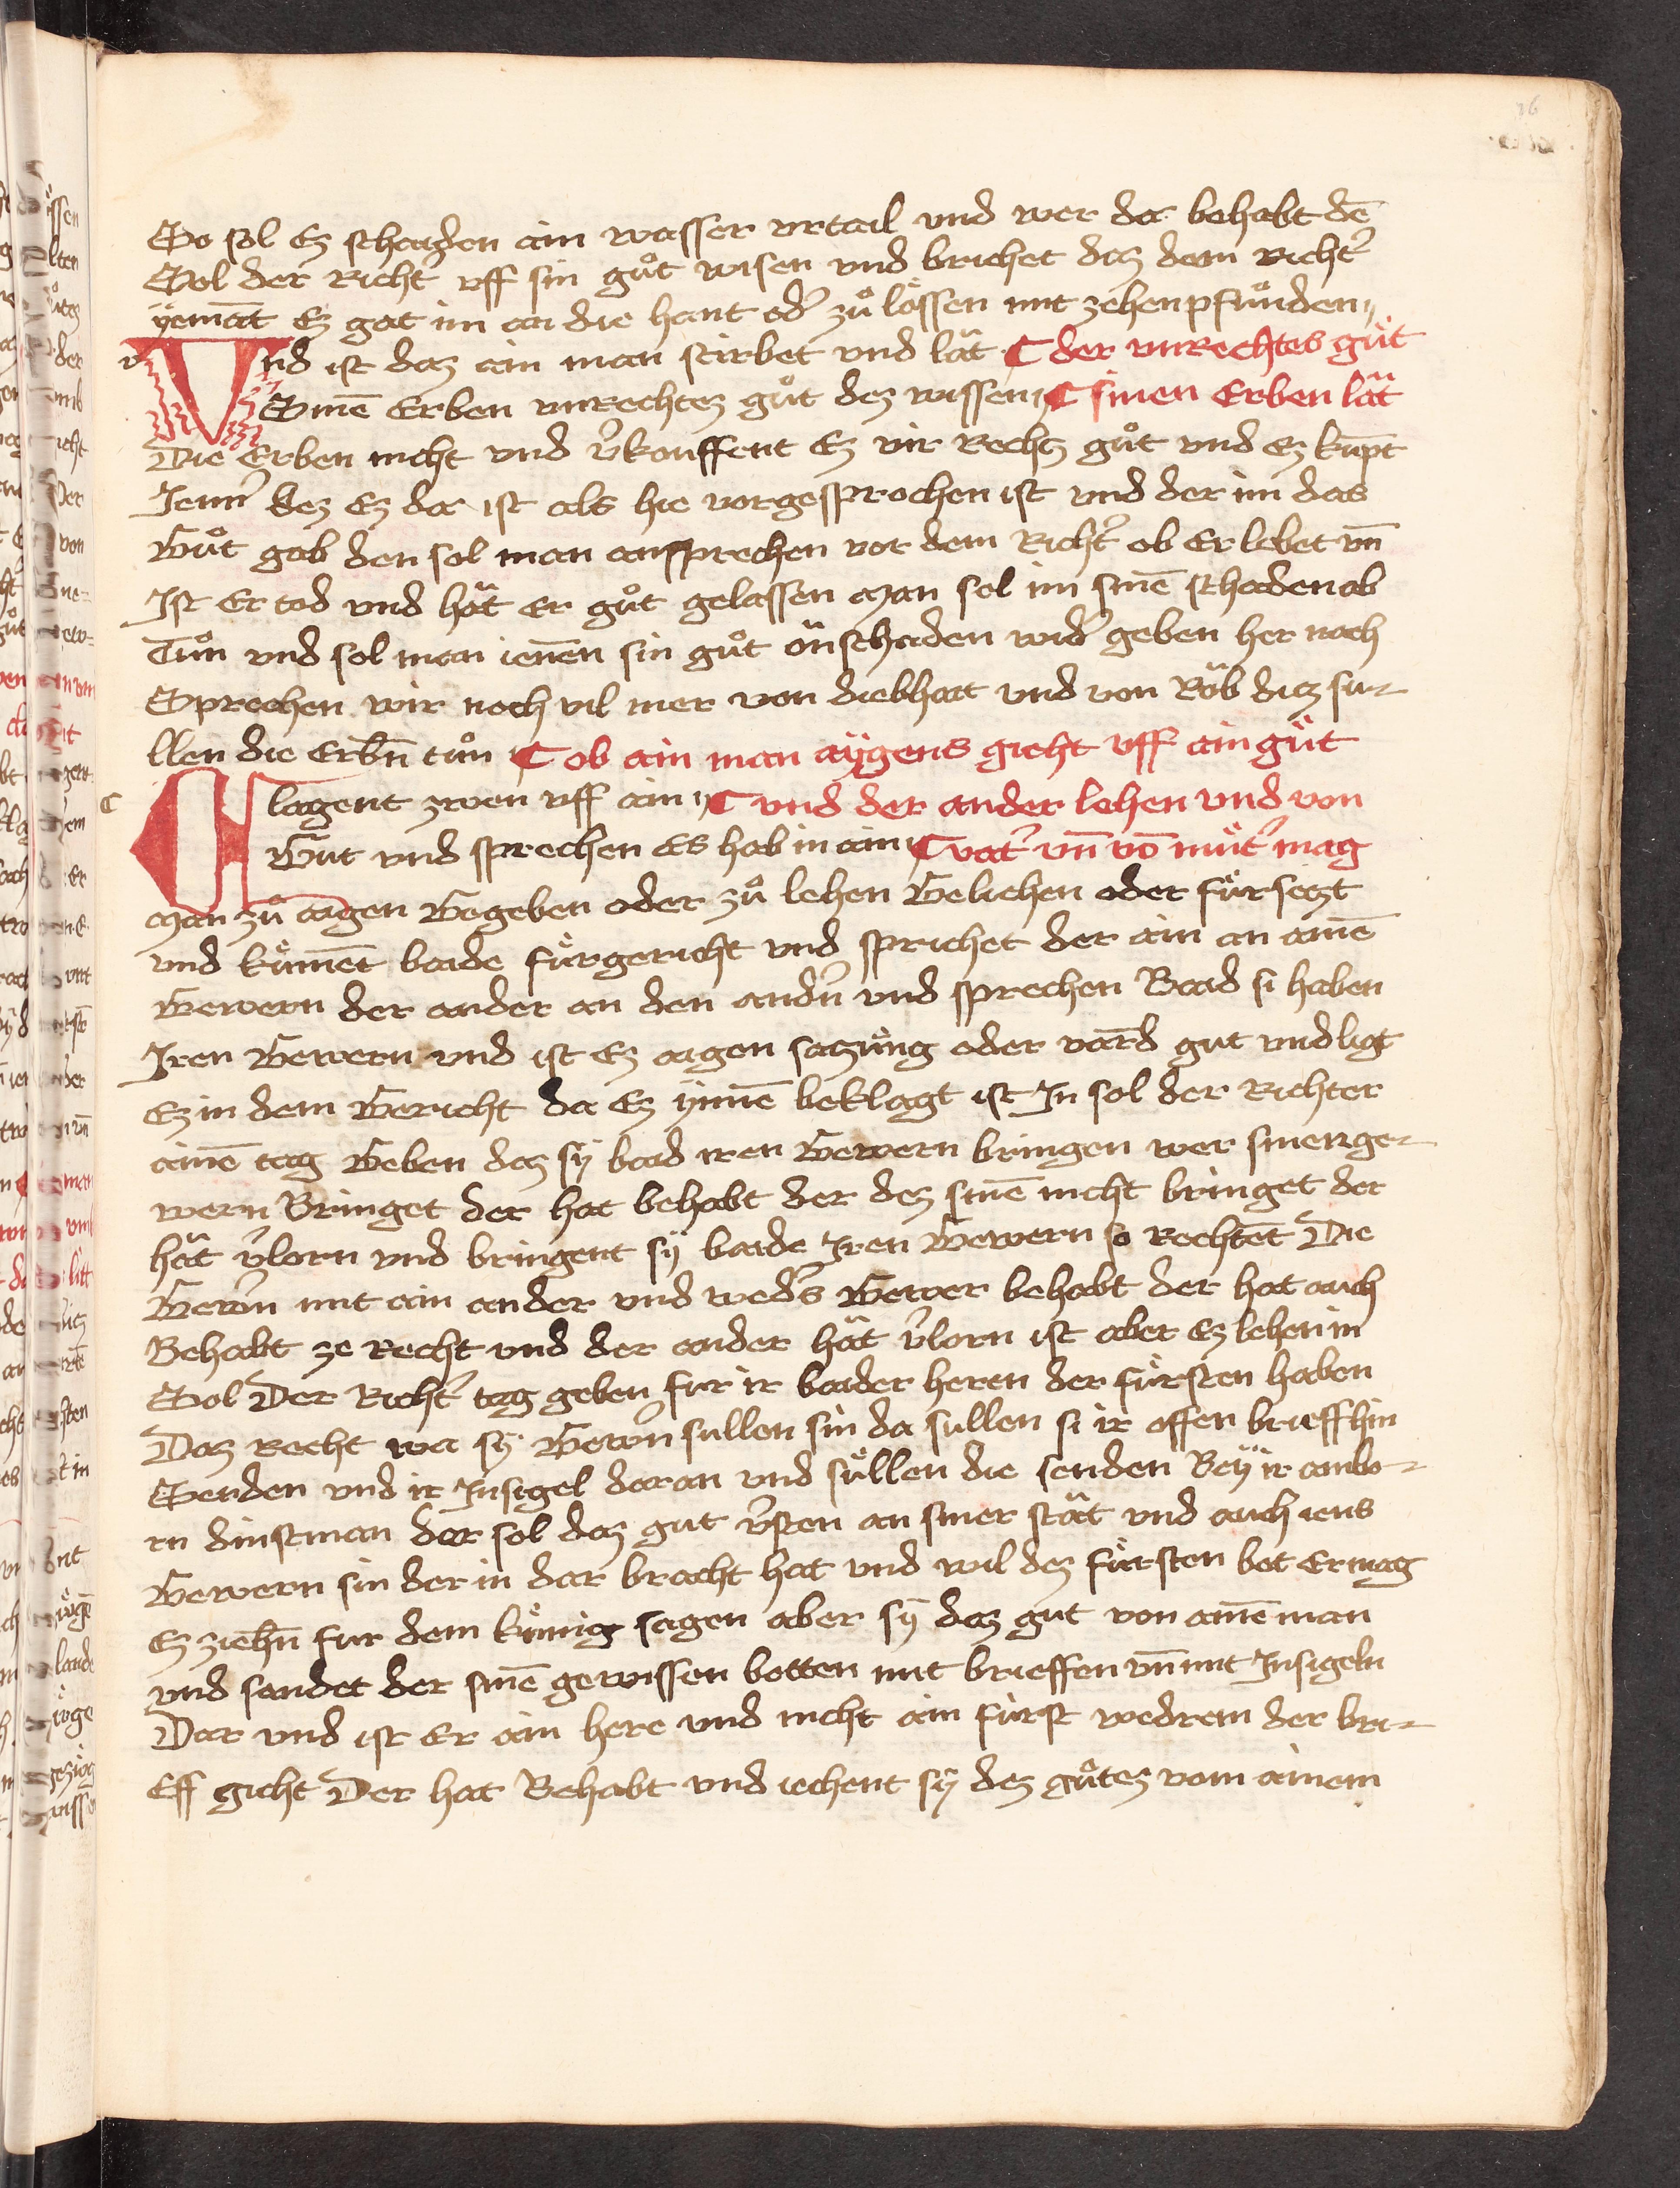 16
So sol Ez schaiden ain wasser vrtail vnd wer da behabt dē
Sol der Richt͛ vff sin gůt wisen vnd brichet daz dem richt͛
yemāt Ez gat im an die hant od͛ zů lössen mit zehenpfůnden
Vnd ist daz ain man stirbet vnd lät ¶ der vnRechtes gůt
Sinē Erben vnrechtez gůt dez wissen ¶ sinen Erben lät
Die Erben nicht vnd v͛kouffent Ez vir Rechtz gůt vnd ez kūpt
Jenn͛ dez Ez da ist als hie vorgesprochen ist vnd der im das
Gůt gab den sol man ansprechen vor dem Richt͛ ob Er lebet vn̄
Ist Er tod vnd hät Er gůt gelassen Man sol im sinē schaden ab
Tůn vnd sol man ienēn sin gůt ön schaden wid͛ geben her nach
Sprechen wir noch vil mer von diebhait vnd von Röb diz su-
llen die Erbn̄ tůn ¶ ob ain man aÿgens gicht vff ain gůt
Clagent zwen vff ain ¶ vnd der ander lehen vnd von
Gut vnd sprechen es hab in ain ¶ vat͛ vn̄ vō můt͛ mag
Man zů aigen Gegeben oder zů lehen Gelichen oder fürsetzt
vnd kümēt baide fürgericht vnd sprichet der ain an ainē
Gewern der ander an den andn͛ vnd sprechen Baid si haben
Iren Gewern vnd ist Ez aigen satzüng oder varnd gut vnd ligt
Ez in dem Gericht da Ez ÿnnē beklagt ist In sol der Richter
ainē tag Geben daz sÿ baid iren Gewern bringen wer sinen ge-
wern Bringet der hat behabt der dez sinē nicht bringet der
hät v͛lorn vnd bringent sÿ baide Iren Gewern so Rechtēt Die
Gewn͛ mit ain ander vnd wed͛s Gewer behabt der hat auch
Behabt ze Recht vnd der ander hät v͛lorn ist aber Ez lehen in
Sol Der Richt͛ tag geben fur ir baider heren der fürsten haben
Daz Recht wa sÿ Gewn͛ sullen sin da sullen si ir offen brieff hin
Senden vnd ir Insigel daran vnd süllen die senden Beÿ ir anbo-
rn dinstman der sol daz gut v͛sten an siner stät vnd auch iens
Gewern sin der in dar bracht hat vnd wil dez fürsten bot Er mag
Ez ziehn̄ fur dem künnig sagen aber sÿ daz gut von ainē man
vnd sendet der sinē gewissen botten mit brieffen vn̄ mit Insigeln
Dar vnd ist Er ain here vnd nicht ain fürst wedrem der bri-
Eff gicht Der hat Behabt vnd iechent sÿ dez gůtez vom ainem